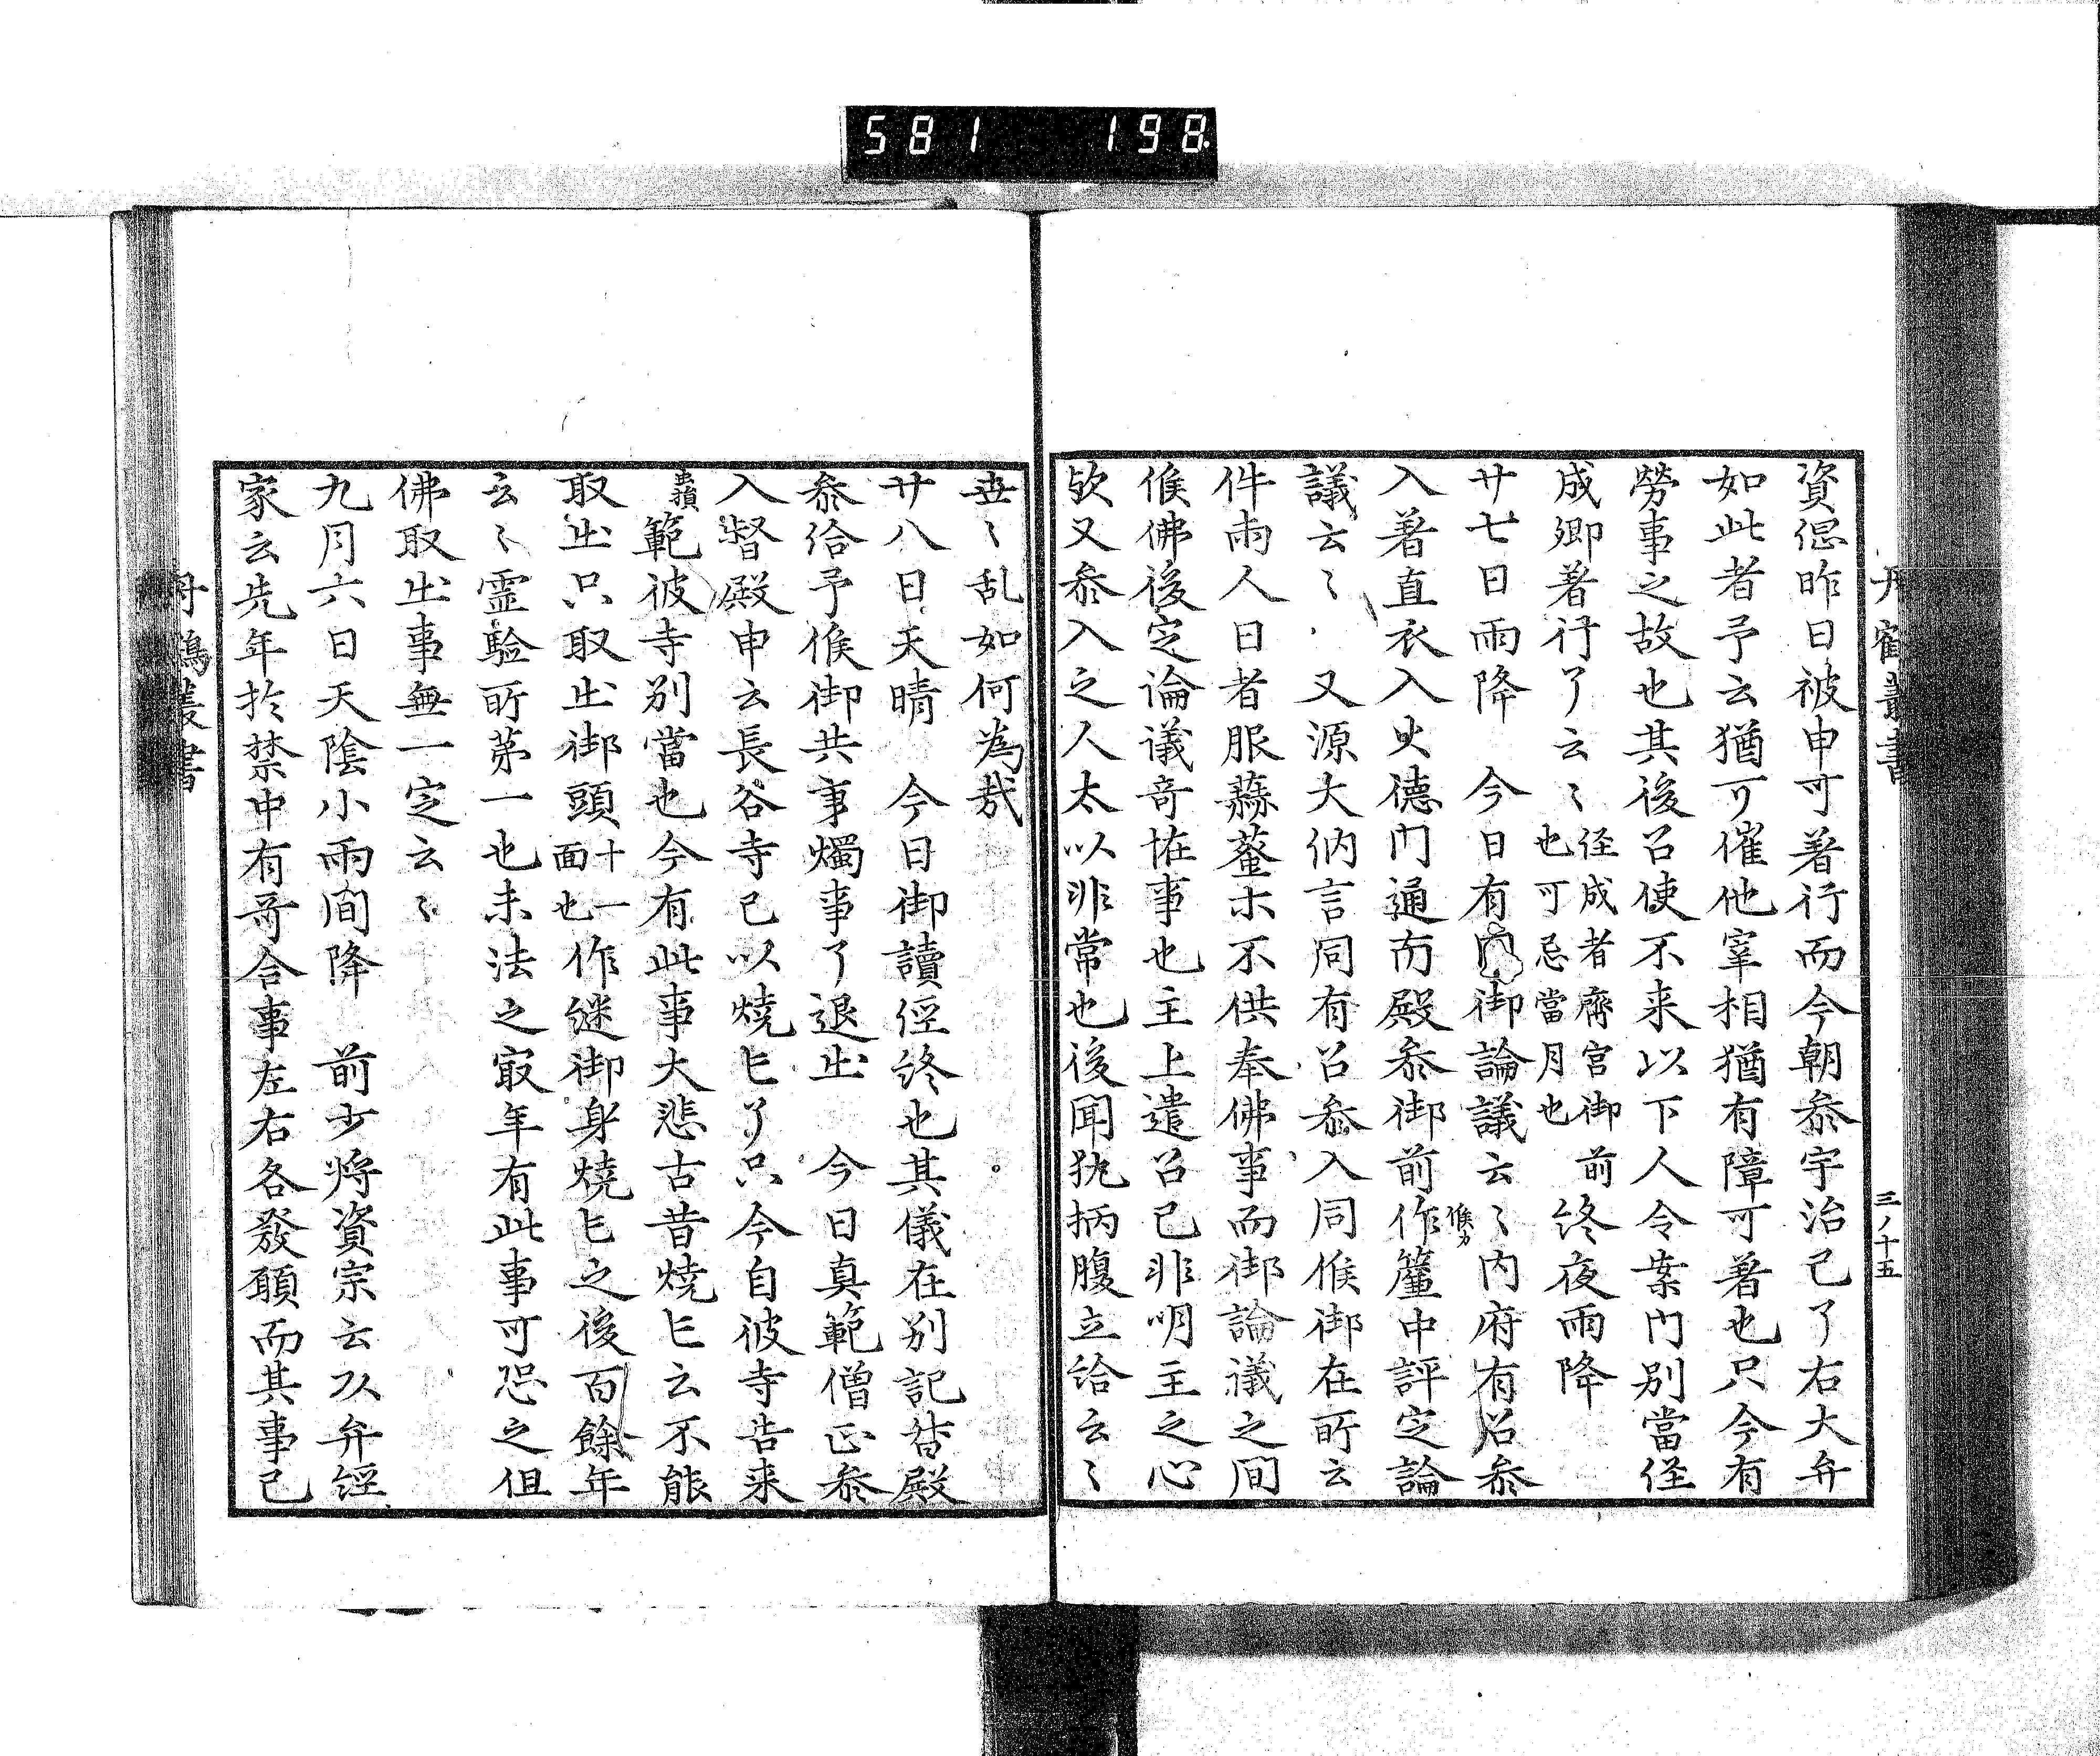 581 198
丹鶴叢書
三ノ十五
資偲昨日被申可著行而今朝参宇治已了右大弁
如此者予云猶可催他宰相猶有障可著也只今有
勞事之故也其後召使不来以下人令案門別當経
成卿著行了云〻経成者齋宮御前也可忌當月也終夜雨降
廿七日雨降 今日有御論議云〻内府有召参
入著直衣入史德門通南殿参御前作簾中評定論
議云〻又源大納言同有召参入同候御在所云
件両人日者服蒜薤木不供奉佛事而御論議之間
候佛後定論議奇恠事也主上遣召已非明主之心
欤又参入之人太以非常也後聞執柄腹立給云〻
候カ
世〻乱如何為哉
廿八日天晴 今日御讀経終也其儀在別記督殿
参給予候御共事燭事了退出 今日真範僧正参
入督殿申云長谷寺已以燒亡了只今自彼寺告来
範彼寺別當也今有此事大悲古昔燒亡云不能
取出只取出御頭十一面也作継御身燒亡之後百餘年
云〻霊験所第一也末法之寂年有此事可恐之但
佛取出事無一定云〻
九月六日天陰小雨間降 前少将資宗云以弁経
家云先年於禁中有哥合事左右各發願而其事已
丹鶴叢書